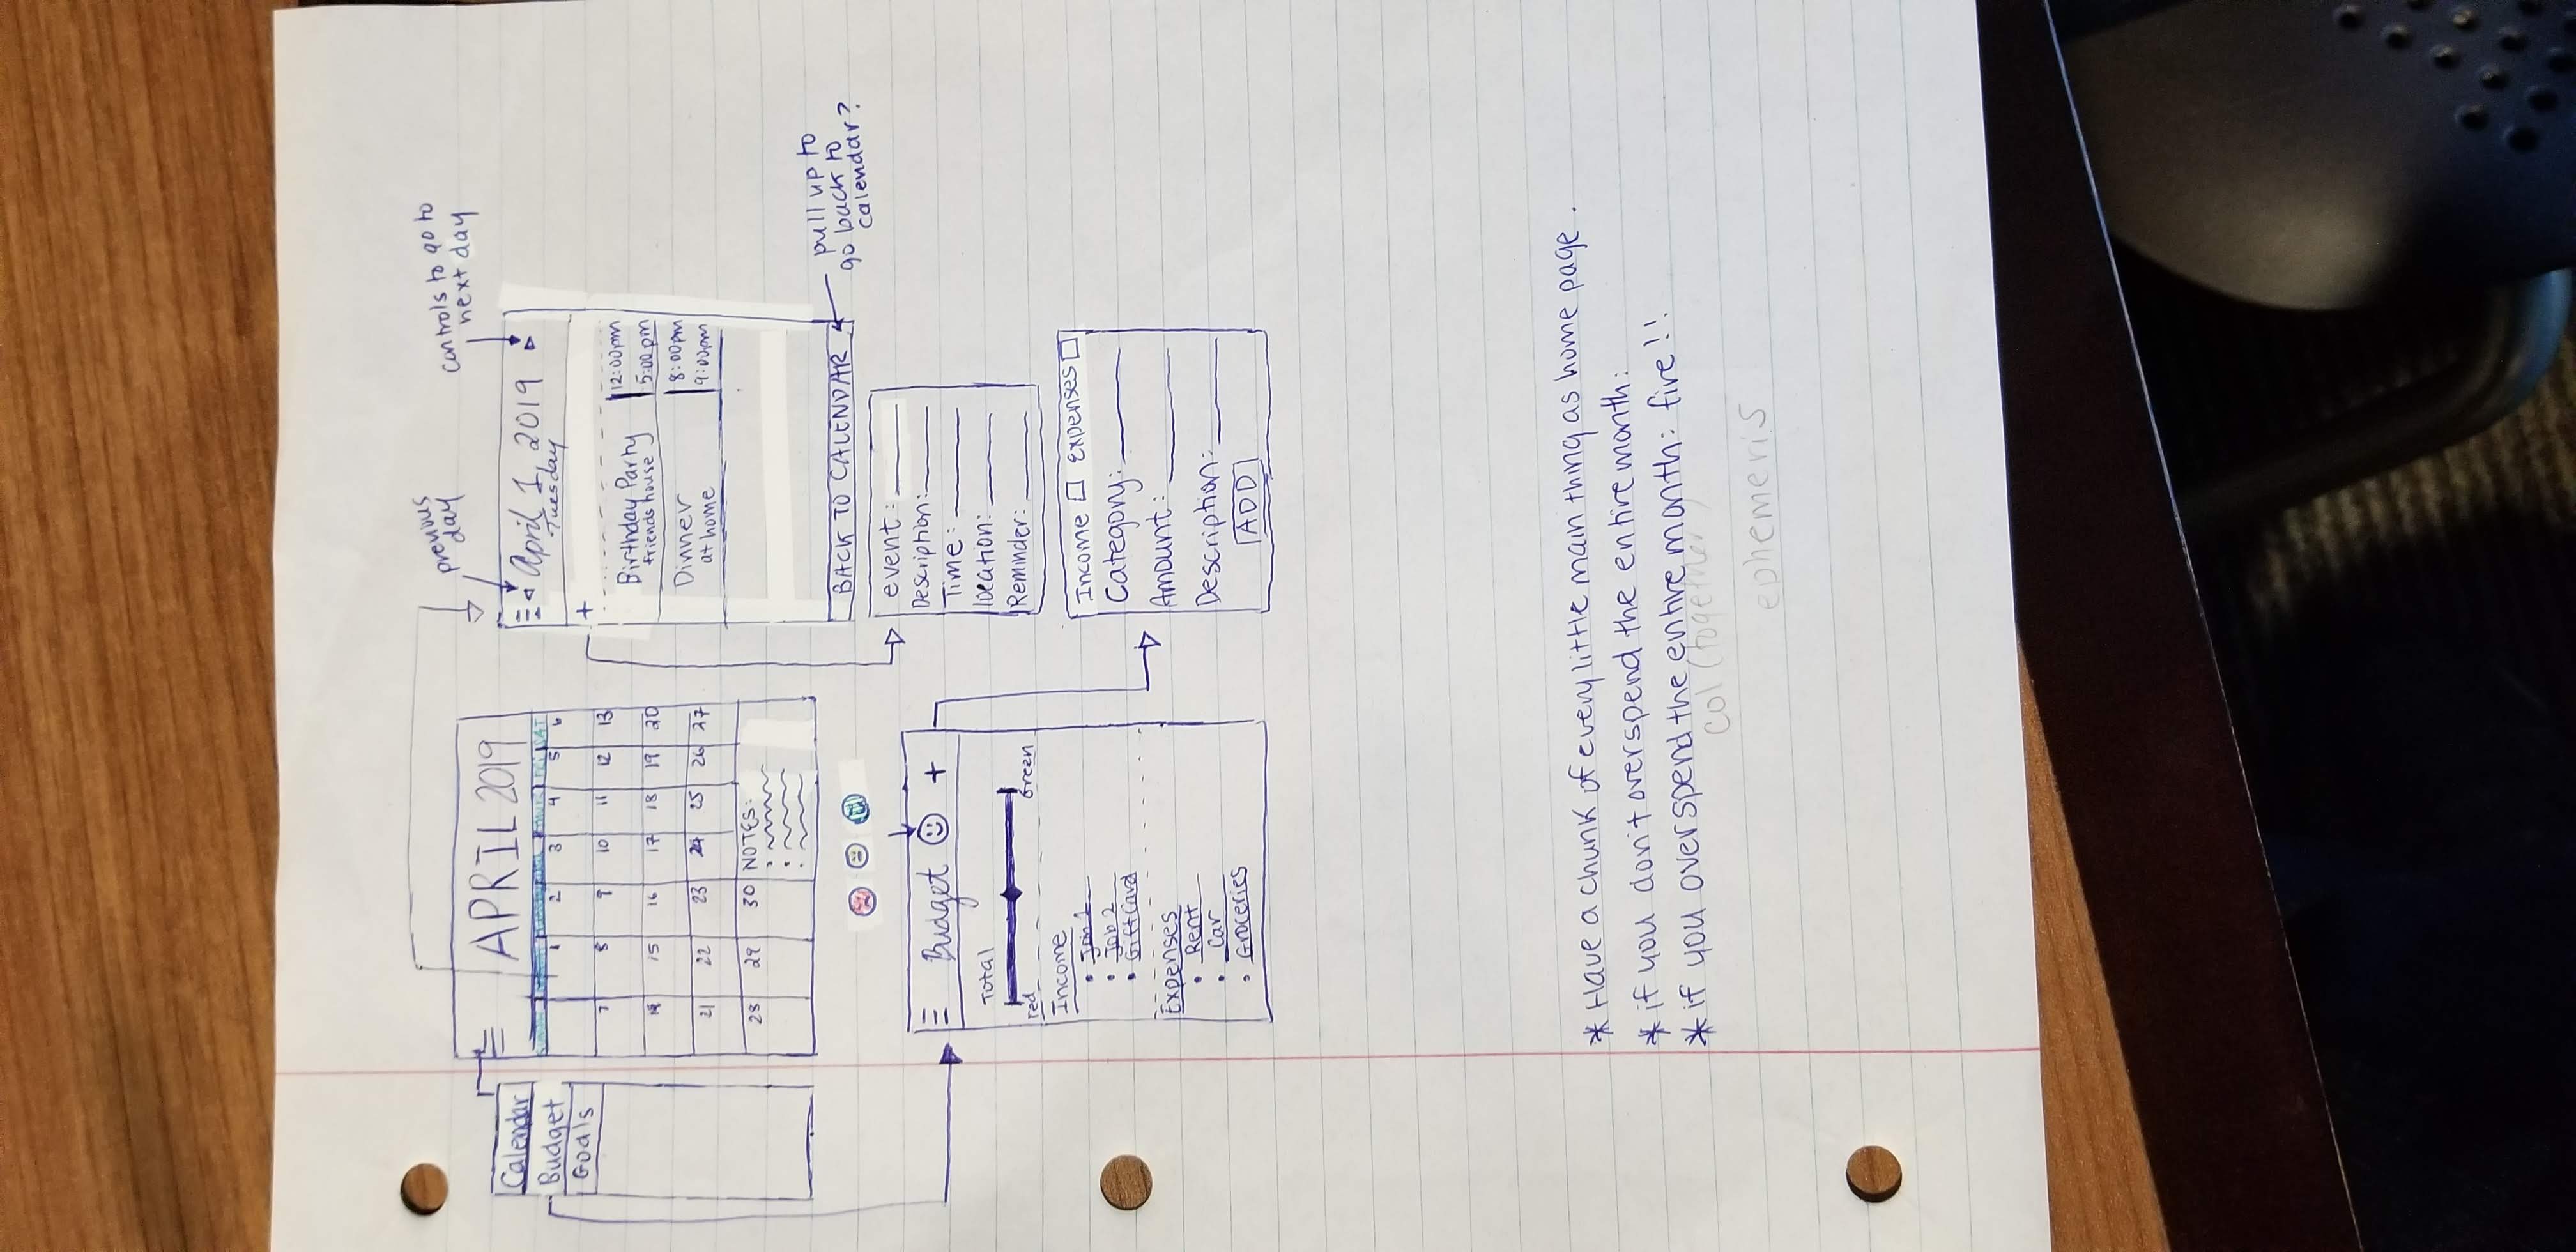 previous
day
controls to go to
next day
Calendar
Budget
Goals
APRIL 2019
THURS FRI SAT
1 2 3 4 5 6
7 8 9 10 11 12 13
14 15 16 17 18 19 20
21 22 23 24 25 26 27
28 29 30 NOTES:
April 1, 2019
Tuesday
+
Birthday Party 12:00pm
friends house 5:00pm
Dinner 8:00pm
at home 9:00pm
BACK TO CALENDAR
pull up to
go back to
calendar?
event:
Description:
Time:
location:
Reminder:
Budget +
Total
red Green
Income
• Job 1
• Job 2
• Giftcard
Expenses
• Rent
• Car
• Groceries
Income Expenses
Category:
Amount:
Description:
ADD
* Have a chunk of every little main thing as home page.
* if you don't overspend the entire month:
* if you overspend the entire month: fire!!
col (together)
ephemeris